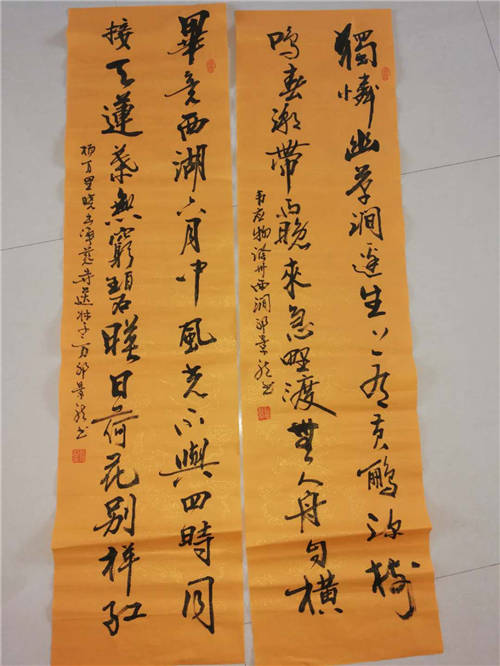 獨憐幽草澗邊生上有黄鸝深樹
鳴春潮帶雨晚來急野渡無人舟自橫
韦应物滁州西澗邱景书
畢竟西湖六月中風光不與四時同
接天蓮葉無窮碧暎日荷花别样红
杨万里曉出淨慈寺送林子方邱景书